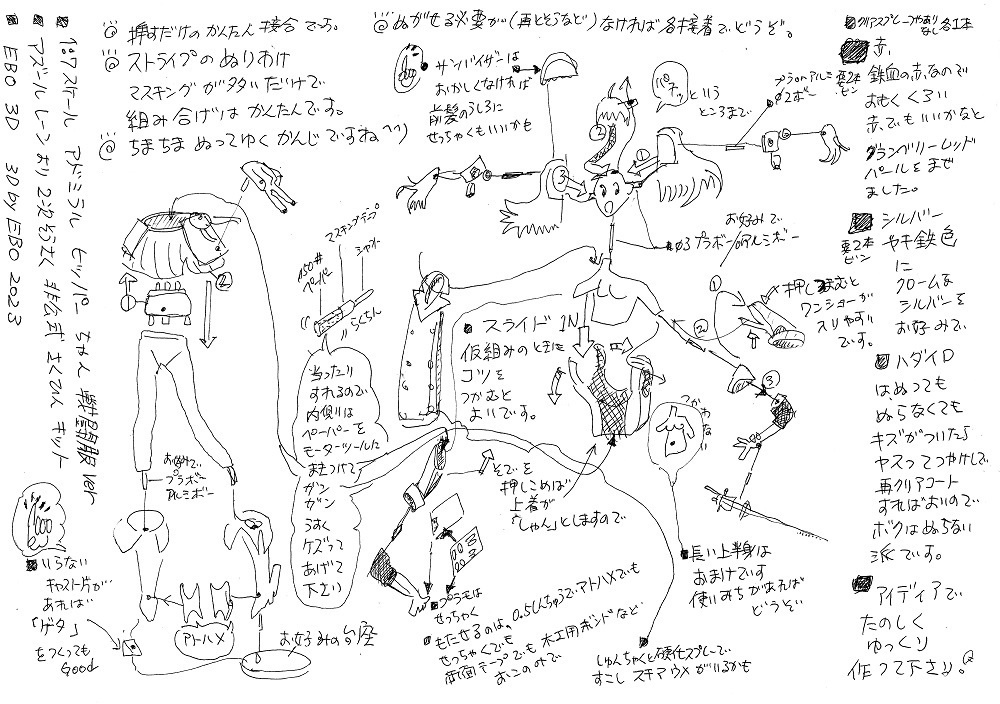 ■ 1:7スケール アドミラル ヒッパー ちゃん 戦闘服 ver
■ アズールレーン より 2次そうさく 非公式 さくでん キット
■ EBO 3D 3D by EBO 2023
◎ 押すだけの かんたん接合です。
◎ ストライプの ぬりわけ
マスキングが多いだけで
組み合げは かんたんです。
◎ ちまちま ぬってゆく かんじですね^^)
◎ ぬがせる必要が(再とそうなど)なければ 各接着でどうぞ。
サンバイザーは
おかしくなければ
前髪のうしろに
せっちゃくもいいかも
パチッ という
ところまで。
■ クリアスプレーつやあり
なし 各1本
■ 赤、
要2本
ビン
鉄血の赤なので
おもくくろい
赤でもいいかなと
クランベリーレッド
パールをまぜ
ました。
■ シルバー
要2本
ビン
や キ鉄色
に
クロームな
シルバーを
お好みで
■ ハダイロ
は、ぬっても
ぬらなくても
キズがついたら
ヤスってつやけして
再クリアコート
すればよいので
ボクはぬらない
派です。
■ アイディアで
たのしく
ゆっくり
作って下さい。
お好みで
■φ3 プラボーorアルミボー
押してつまむと
ワンショーが
入りやすい
です。
①
②
③
マスキングテープ
シャフト
150#
ペーパー
らくちん
当ったり
すれるので
内側りは
ペーパーを
モーターツールに
まきつけて
ガン
ガン
うすく
ケズって
あげて
下さい
■ スライド IN
仮組みのときに
コツを
つかむと
よいです。
つかわない
そでを
押しこめば
上着が
「しゃん」としますので
■ 長い上半身は
おまけです
使いみちがあれば
どうぞ
■ しゅんちゃくと硬化スプレーで
すこし スキマウメがいるかも
■ プラモは
せっちゃく
■ もたせるのは、0.5しんちゅうでアトハメでも
せっちゃくでも
両面テープでも 木工用ボンドなど
おこのみで
お好みで
プラボー
アルミボー
アトハメ
お好みの台座
■ いらない
キャスト片が
あれば
「ゲタ」
をつくっても
Good